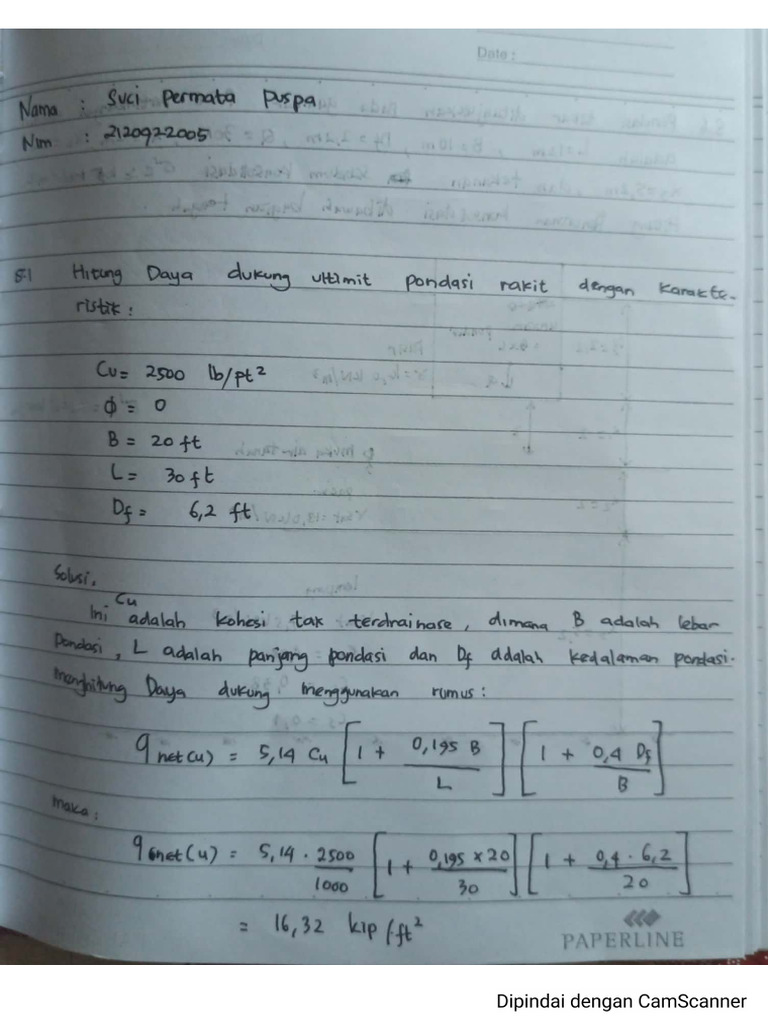 Date :
Nama : Suci Permata Puspa
Nim : 2120922005
5.1 Hitung Daya dukung ultimit pondasi rakit dengan karakte-
ristik :
Cu = 2500 lb/pt²
ϕ = 0
B = 20 ft
L = 30 ft
Df = 6,2 ft
Solusi.
Cu
Ini adalah kohesi tak terdrainase, dimana B adalah lebar
pondasi, L adalah panjang pondasi dan Df adalah kedalaman pondasi.
menghitung Daya dukung menggunakan rumus :
q net(u) = 5,14 Cu [1 + 0,195 B / L] [1 + 0,4 Df / B]
maka :
q net(u) = 5,14 . 2500 / 1000 [1 + 0,195 x 20 / 30] [1 + 0,4 . 6,2 / 20]
= 16,32 kip/ft²
PAPERLINE
Dipindai dengan CamScanner